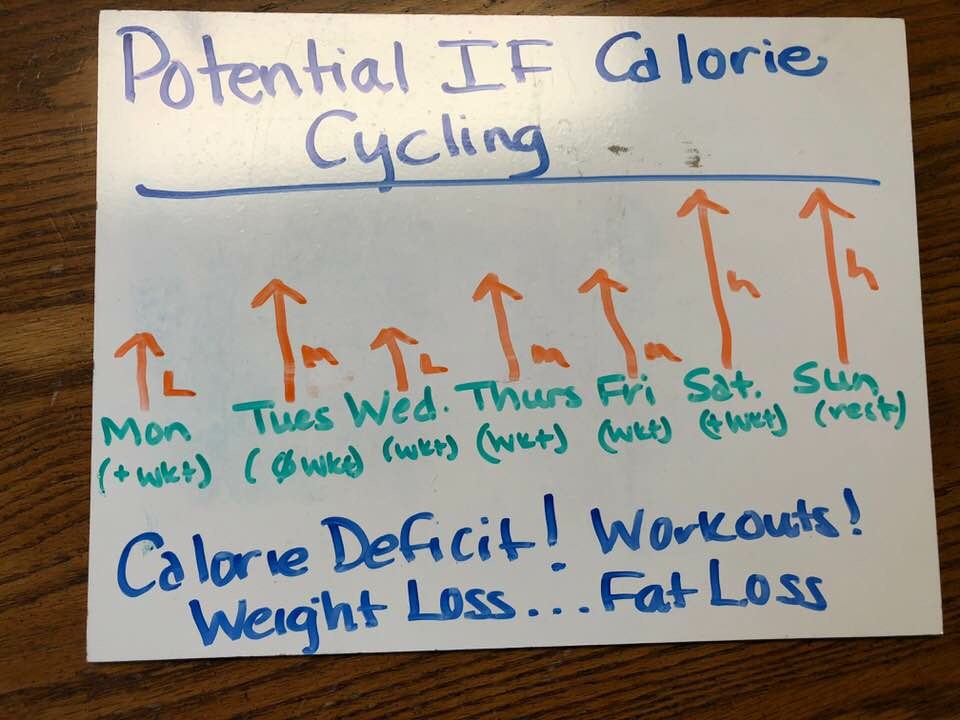 Potential IF Calorie
Cycling
L m L m m h h
Mon Tues Wed. Thurs Fri Sat. Sun
(+wkt) (Ø wkt) (wkt) (wkt) (wkt) (+wkt) (rest)
Calorie Deficit! Workouts!
Weight Loss...Fat Loss